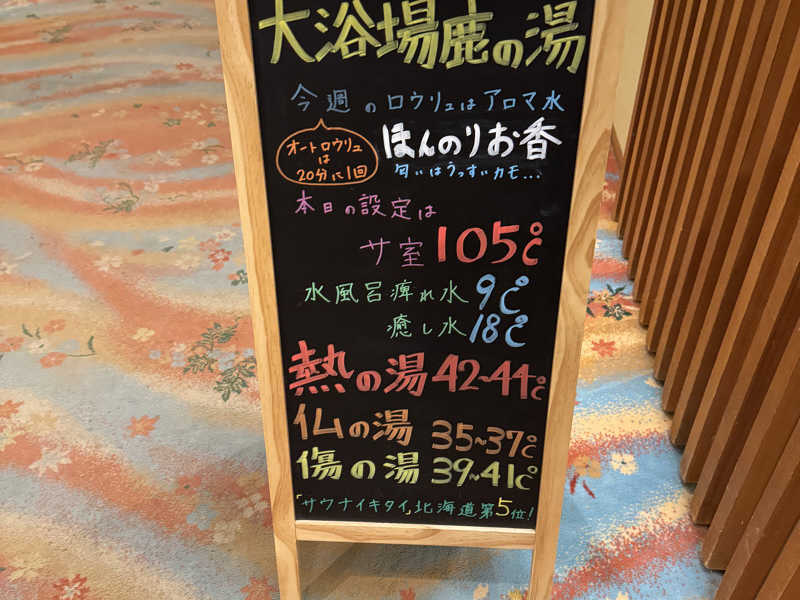 大浴場鹿の湯
今週のロウリュはアロマ水
オートロウリュ
は
20分に1回
ほんのりお香
匂いはうっすいカモ...
本日の設定は
サ室 105℃
水風呂痺れ水 9℃
癒し水 18℃
熱の湯 42~44℃
仏の湯 35~37℃
傷の湯 39~41℃
「サウナイキタイ」北海道第5位!